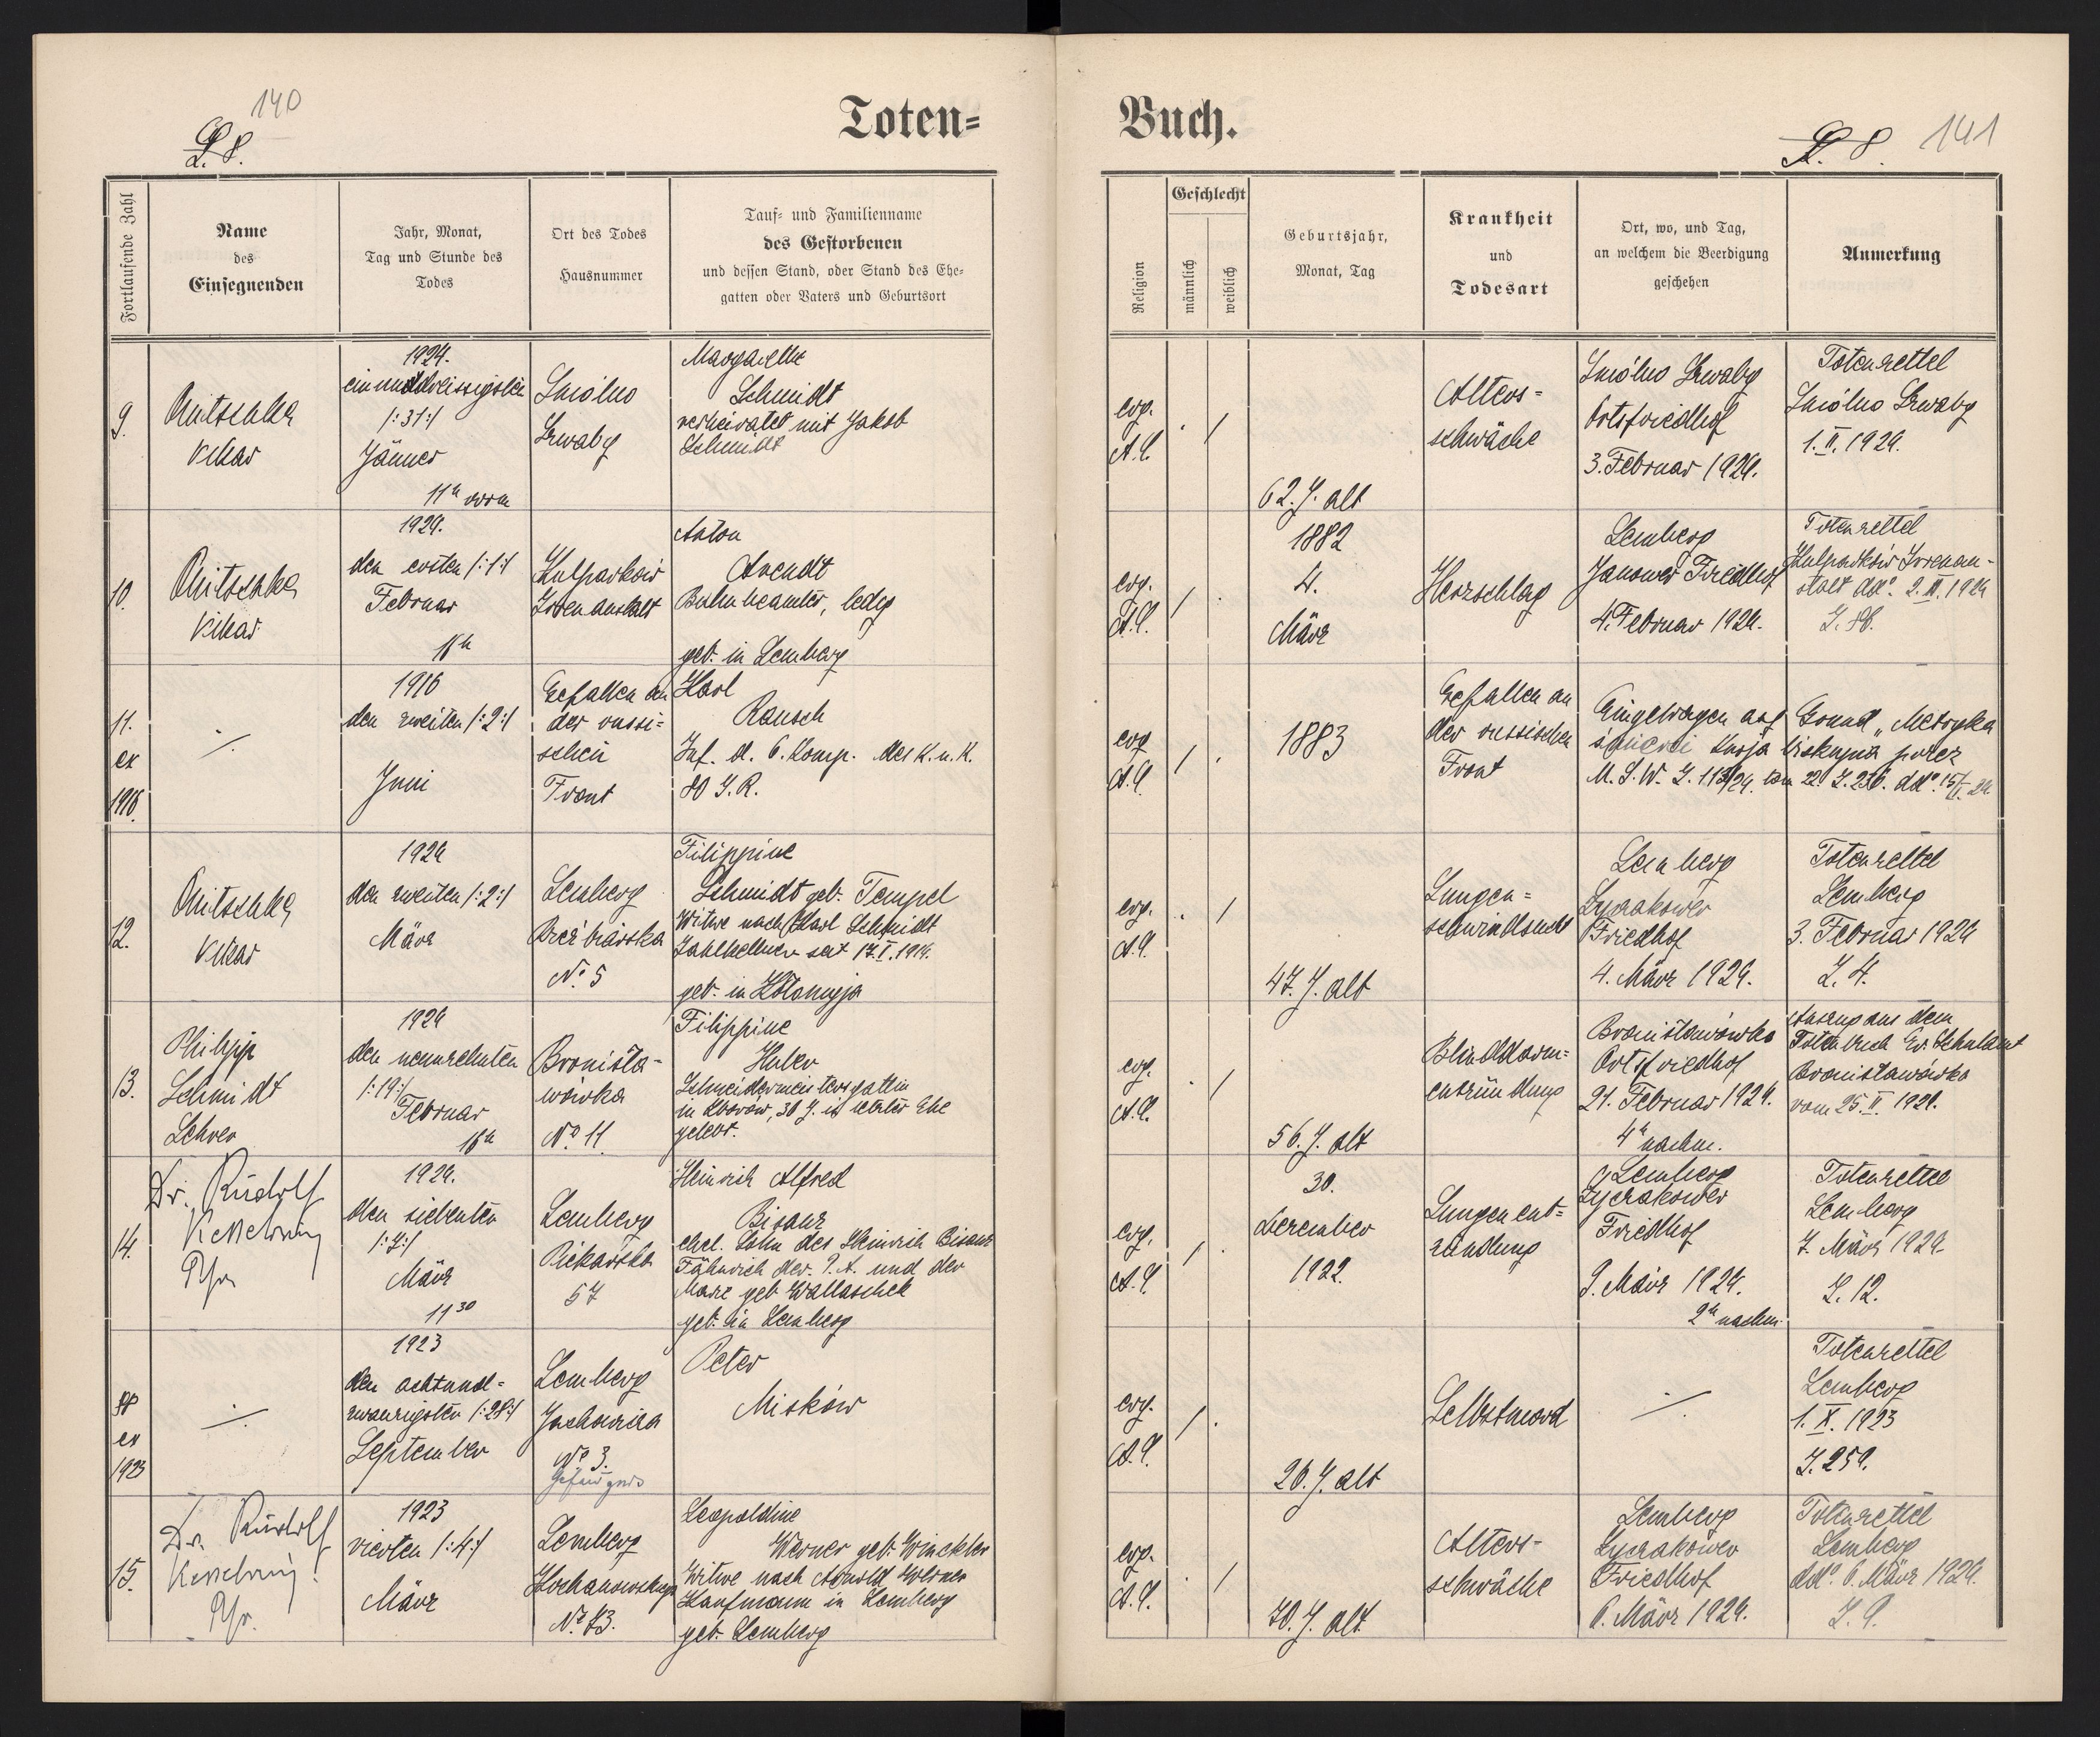 140
L. 8.
Toten=
Fortlaufende Zahl
Name
des
Einsegnenden
Jahr, Monat,
Tag und Stunde des
Todes
Ort des Todes
Hausnummer
Tauf= und Familienname
des Gestorbenen
und dessen Stand, oder Stand des Ehe=
gatten oder Vaters und Geburtsort
9.
Vikar
1924.
einunddreissigsten
/:31:/
Jänner
11h vorm
Margarethe
Schmidt
verheiratet mit Jakob
Schmidt
10.
Vikar
1924.
den ersten /:1:/
Februar
Kulparkow
Irrenanstalt
Anton
Arendt
Bahnbeamter, ledig
geb. in Lemberg
11.
ex
1916.
1916
den zweiten /:2:/
Juni
Gefallen an
der russi=
schen
Front
Karl
Rausch
Inf. d. 6. Komp. des K. u. K.
80 I. R.
12.
Vikar
1924
den zweiten /:2:/
März
Lemberg
No 5
Filippine
Schmidt geb. Tempel
Witwe nach Karl Schmidt
geb. in Kołomyja
13.
Philipp
Schmidt
Lehrer
1924
den neunzehnten
/:19:/
Februar
Bronisła-
wówka
No 11.
Filippine
Huber
Schneidermeistersgattin
14.
Dr. Rudolf
Kesselring
Pfr.
1924.
den siebenten
/:7:/
März
11 30
Lemberg
Piekarska
57
Heinrich Alfred
Bisanz
ehel. Sohn des Heinrich Bisanz
Fähnrich der P. A. und der
Marie geb. Wallaschek
geb. in Lemberg
ex
1923
1923
den achtund=
zwanzigsten /:28:/
September
Lemberg
Jachowicza
No 3.
Gefängnis
Peter
Miskow
15.
Dr. Rudolf
Kesselring
Pfr.
1923
vierten /:4:/
März
Lemberg
Kochanowskiego
No 73.
Leopoldine
Werner geb. Winckler
Witwe nach Arnold Werner
Kaufmann in Lemberg
geb. Lemberg
Buch.
L. 8. 141
Religion
Geschlecht
männlich
weiblich
Geburtsjahr,
Monat, Tag
Krankheit
und
Todesart
Ort, wo, und Tag,
an welchem die Beerdigung
geschehen
Anmerkung
evg.
A.C.
62. J. alt
Alters-
schwäche
Ortsfriedhof
3. Februar 1924.
Totenzettel
1. II. 1924.
evg.
A.C.
1882
4.
März
Herzschlag
Lemberg
Janower Friedhof
4. Februar 1924.
Totenzettel
Kulparków Irrenan-
stalt
evg
A.C.
1883
Gefallen an
der russischen
Front
Eingetragen auf Grund „Metryka
śmierci
evg.
A.C.
47. J. alt
Lungen=
schwindsucht
Lemberg
Lyczakower
Friedhof
4. März 1924.
Totenzettel
Lemberg
3. Februar 1924
Z. 4.
evg.
A.C.
56. J. alt
Blinddarm=
entzündung
Bronisławówka
Ortsfriedhof
21. Februar 1924.
4h nachm.
Auszug aus dem
Totenbuch Ev. Schulamt
Bronisławówka
vom 25. II. 1924.
evg.
A.C.
30.
Dezember
1922.
Lungenent=
zündung
Lemberg
Lyczakower
Friedhof
9. März 1924.
2h nachm.
Totenzettel
Lemberg
7. März 1924
Z. 12.
evg.
A.C.
26. J. alt
Selbstmord
Totenzettel
Lemberg
1. X. 1923
evg.
A.C.
70. J. alt
Alters-
schwäche
Lemberg
Lyczakower
Friedhof
6. März 1924.
Totenzettel
Lemberg
ddo. 6. März 1924.
Z. 9.